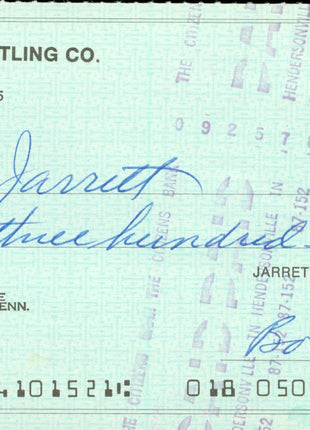 TLING CO.
5
Jarrett
three hundred
JARRET
E
ENN.
Bo
4101521⑆ 018 050
THE CITIZENS BANK
HENDERSONVILLE
PAID
0 9 2 5 7
THE CITIZENS BANK
HENDERSONVILLE IN
87-152 87-152 87-152